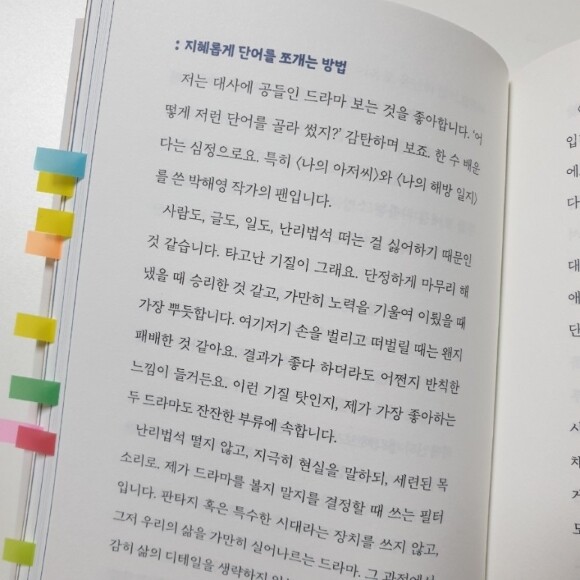 : 지혜롭게 단어를 쪼개는 방법
저는 대사에 공들인 드라마 보는 것을 좋아합니다. '어
떻게 저런 단어를 골라 썼지?' 감탄하며 보죠. 한 수 배운
다는 심정으로요. 특히 〈나의 아저씨〉와 〈나의 해방 일지〉
를 쓴 박해영 작가의 팬입니다.
사람도, 글도, 일도, 난리법석 떠는 걸 싫어하기 때문인
것 같습니다. 타고난 기질이 그래요. 단정하게 마무리 해
냈을 때 승리한 것 같고, 가만히 노력을 기울여 이뤘을 때
가장 뿌듯합니다. 여기저기 손을 벌리고 떠벌릴 때는 왠지
패배한 것 같아요. 결과가 좋다 하더라도 어쩐지 반칙한
느낌이 들거든요. 이런 기질 탓인지, 제가 가장 좋아하는
두 드라마도 잔잔한 부류에 속합니다.
난리법석 떨지 않고, 지극히 현실을 말하되, 세련된 목
소리로. 제가 드라마를 볼지 말지를 결정할 때 쓰는 필터
입니다. 판타지 혹은 특수한 시대라는 장치를 쓰지 않고,
그저 우리의 삶을 가만히 실어나르는 드라마. 그 과정에서
감히 삶의 디테일을 생략하지